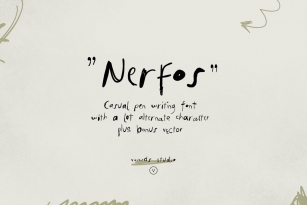 "Nerfos"
Casual pen writing font
with a lot alternate character
plus bonus vector
studio